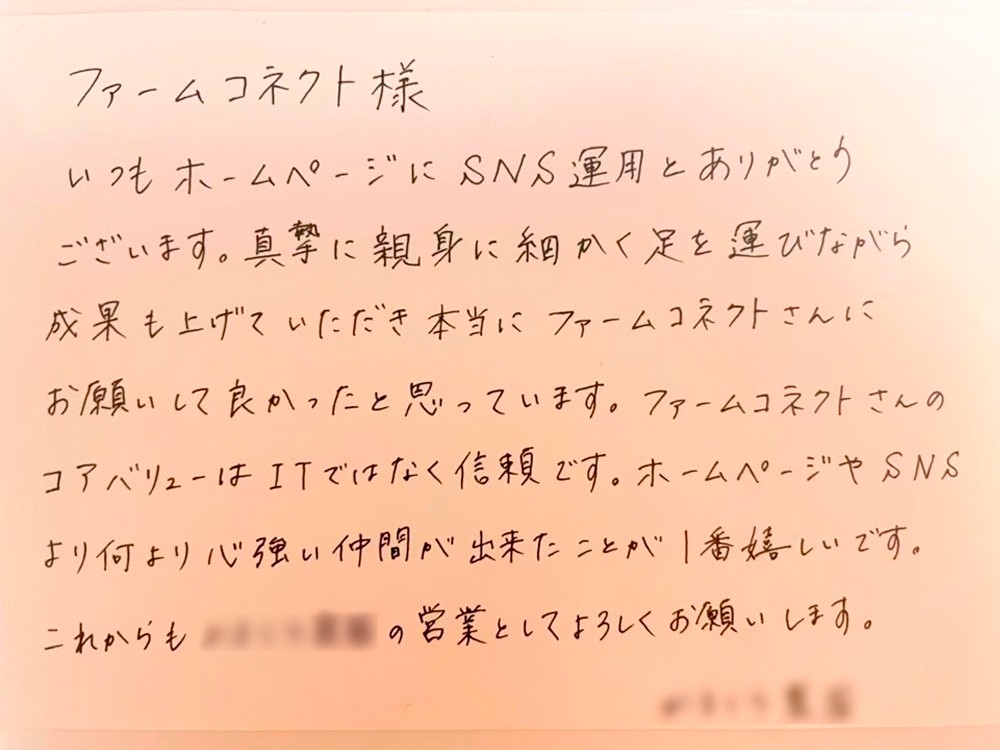 ファームコネクト様
いつもホームページにSNS運用とありがとう
ございます。真摯に親身に細かく足を運びながら
成果も上げていただき本当にファームコネクトさんに
お願いして良かったと思っています。ファームコネクトさんの
コアバリューはITではなく信頼です。ホームページやSNS
より何より心強い仲間が出来たことが1番嬉しいです。
これからも の営業としてよろしくお願いします。